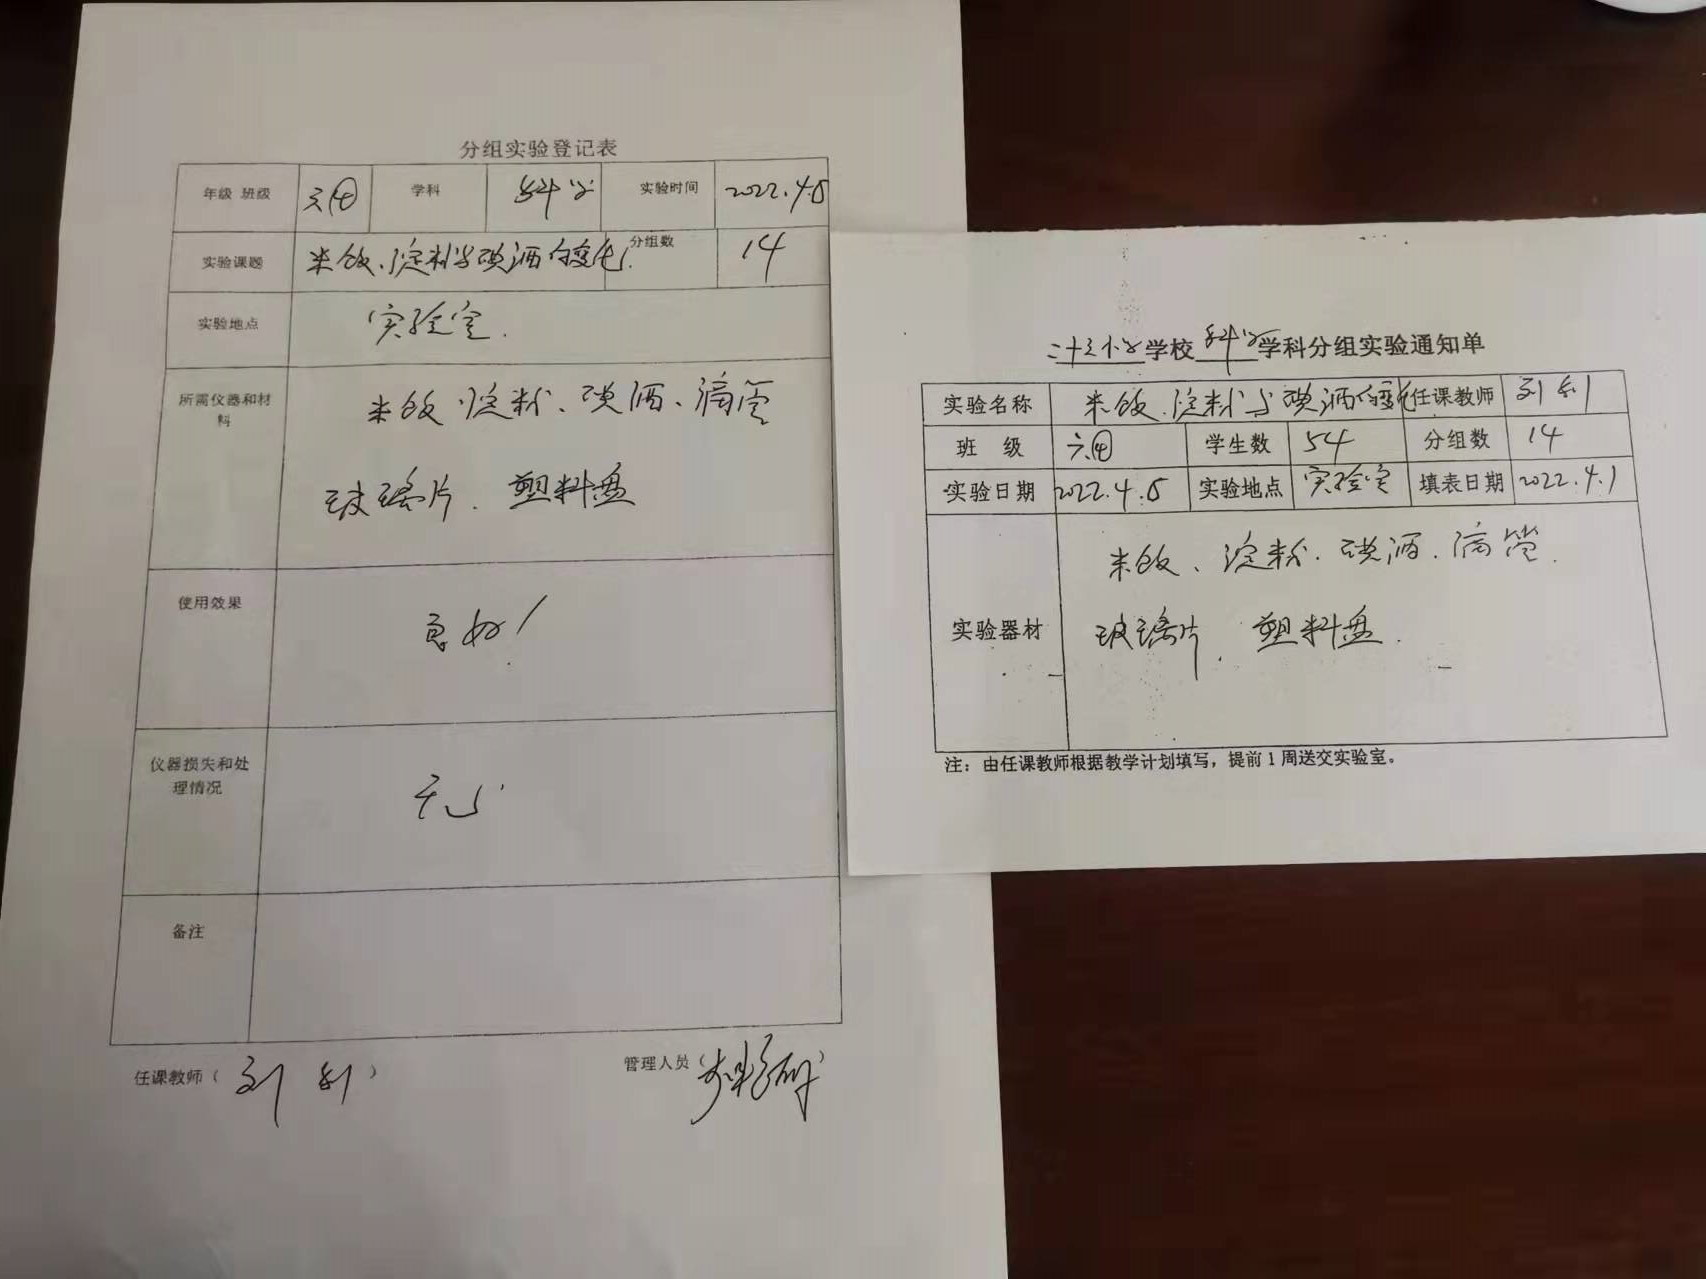 分组实验登记表
年级 班级 六④ 学科 科学 实验时间 2022.4.8
实验课题 米饭、淀粉与碘酒的变化. 分组数 14
实验地点 实验室.
所需仪器和材料 米饭、淀粉、碘酒、滴管
玻璃片、塑料盘
使用效果 良好!
仪器损失和处理情况 无
备注
任课教师( 刘 )
管理人员( )
二十三小学学校 科学 学科分组实验通知单
实验名称 米饭、淀粉与碘酒的变化 任课教师 刘
班 级 六④ 学生数 54 分组数 14
实验日期 2022.4.8 实验地点 实验室 填表日期 2022.4.1
实验器材 米饭、淀粉、碘酒、滴管.
玻璃片、塑料盘.
注:由任课教师根据教学计划填写,提前1周送交实验室。